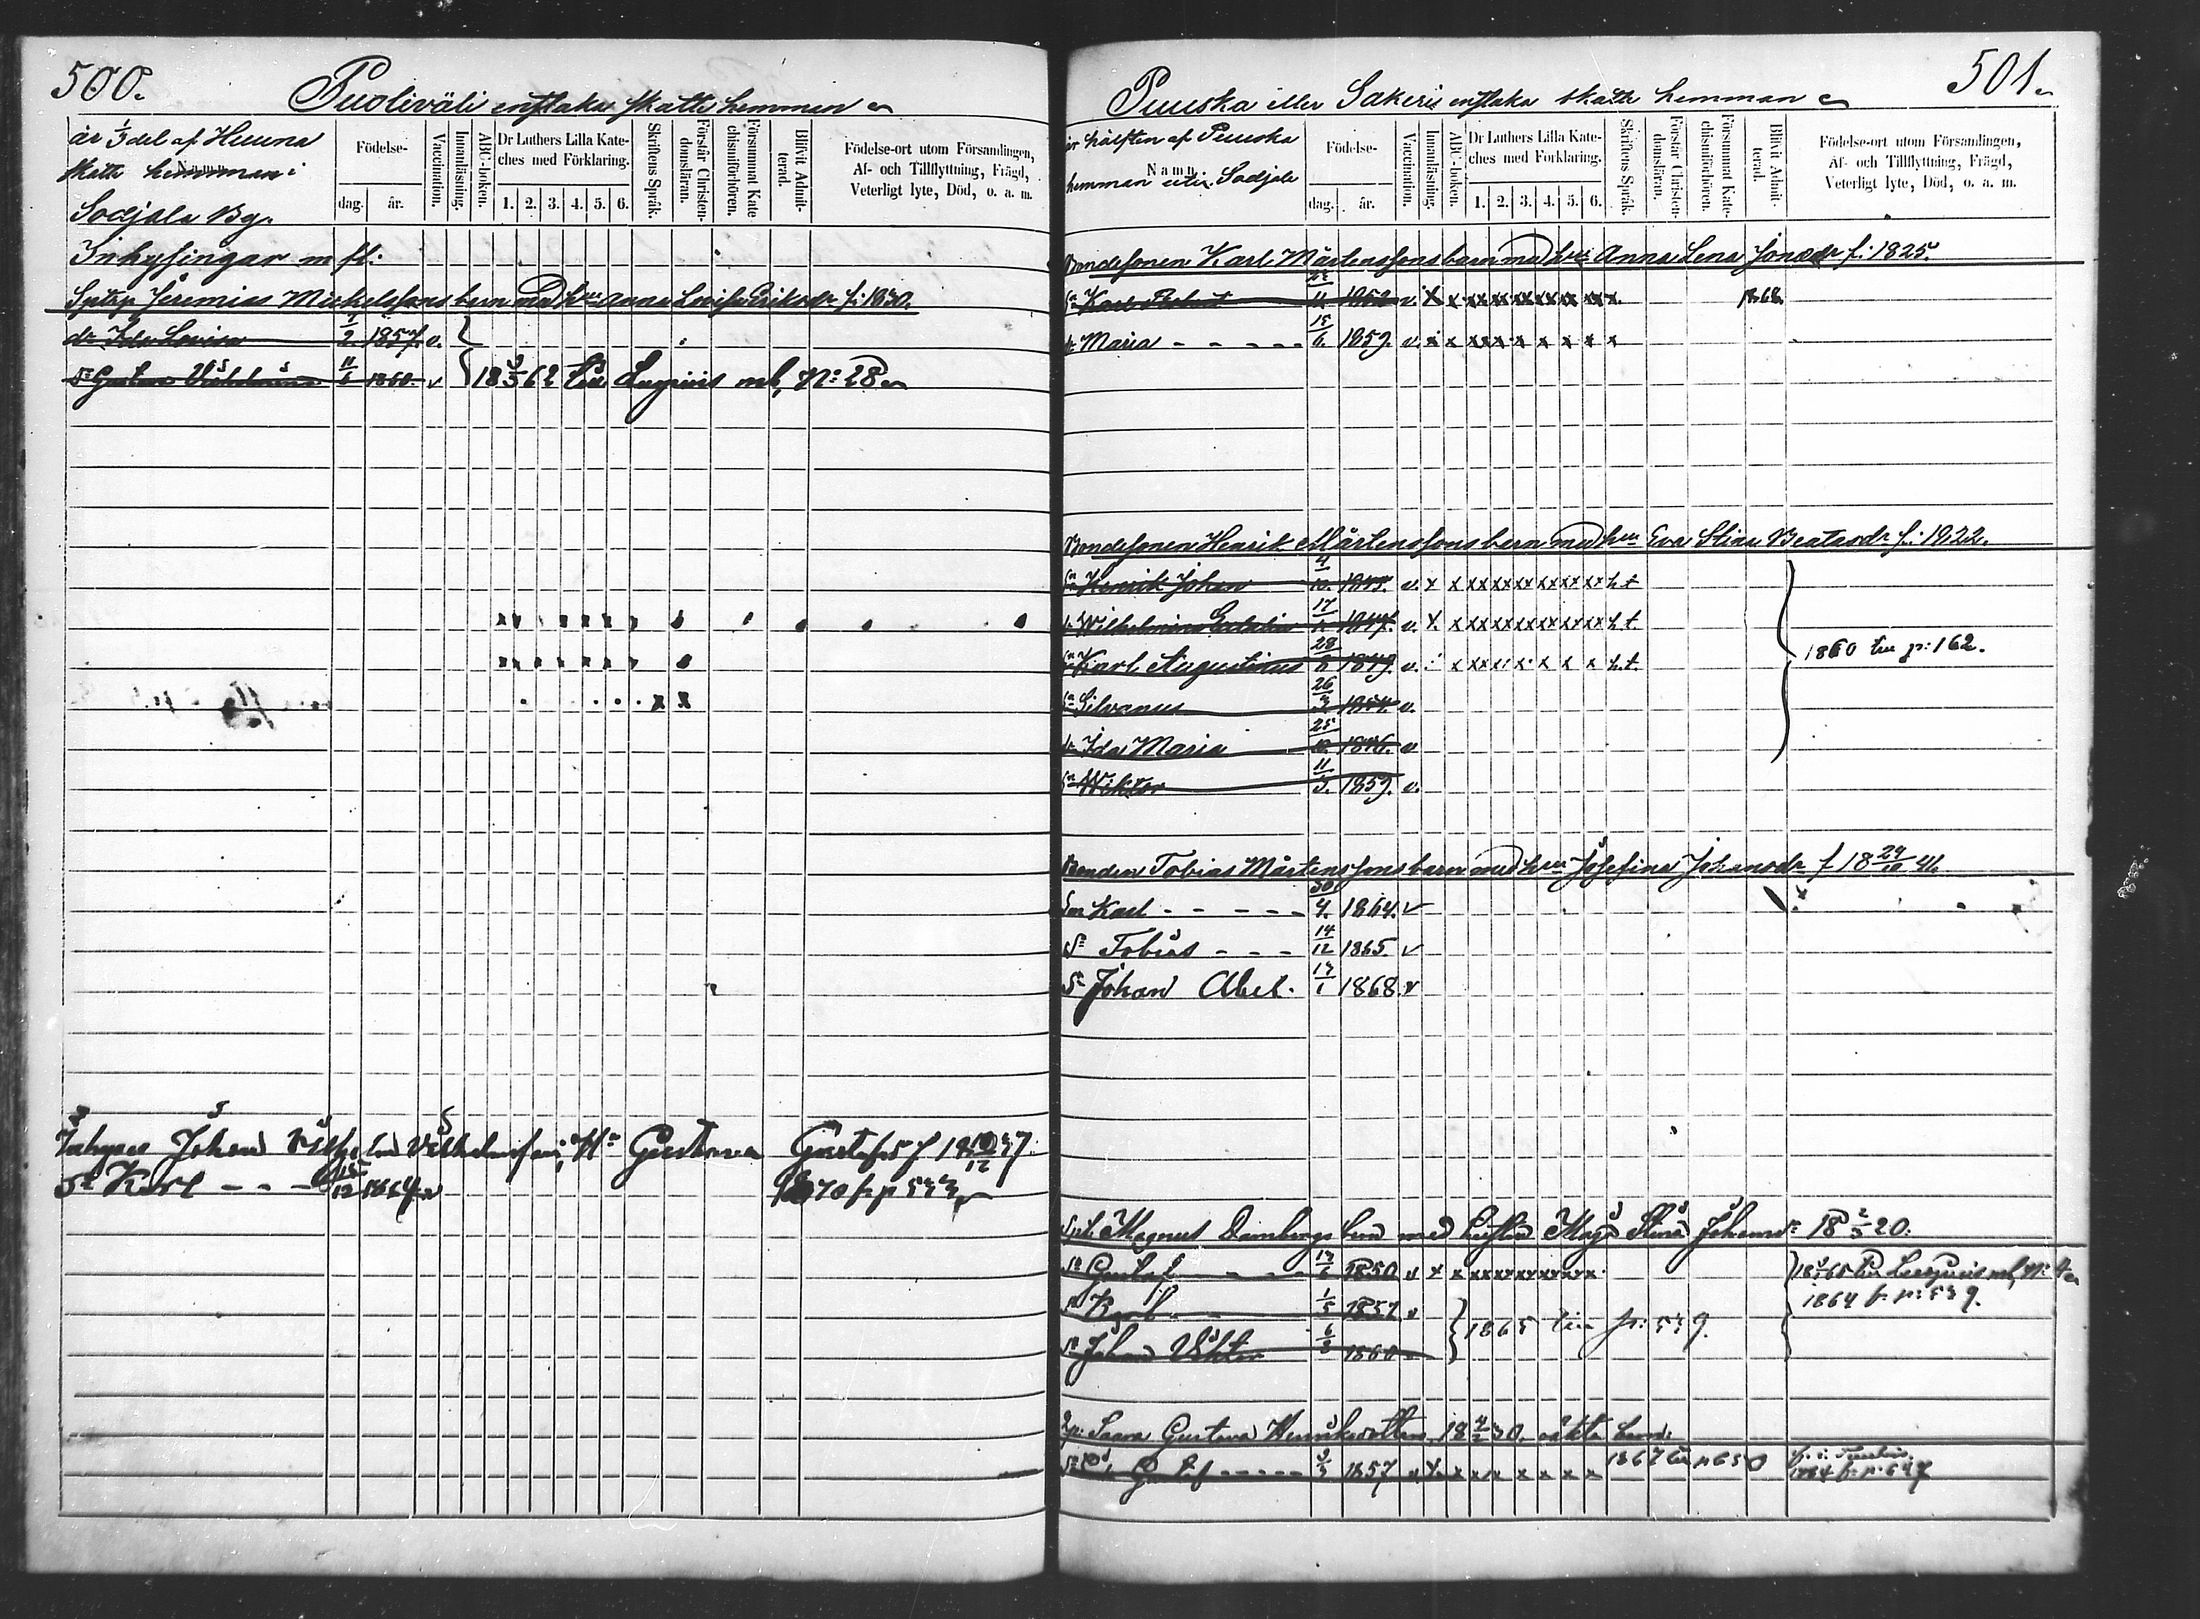 500.
Puoliväli enstaka skatte hemman
är 1/3 del af Heuna
skatte hemman i
Sodjala By.
Namn.
Födelse-
dag. år.
Vaccination.
Innanläsning.
ABC-boken.
Dr Luthers Lilla Kate-
ches med Förklaring.
1. 2. 3. 4. 5. 6.
Skriftens Språk.
Förstår Christen-
domsläran.
Försummat Kate-
chismiförhören.
Blifvit Admit-
terad.
Födelse-ort utom Församlingen,
Af- och Tillflyttning, Frägd,
Veterligt lyte, Död, o. a. m.
Inhysingar m fl:
Jeremias Michelssons barn med hu: Anna Lovisa Eriksdr f: 1830.
dr Ida Lovisa 7/2 1857. v.
Sn Gustaf Vilhelm 11/6 1860. v
18 3/5 62 till No 28
Inhyses Johan Vilhelm Vilhelmsson, Hu Gustava Gustafsd f 18 10/12 37.
Sn Karl - - - 15/12 1864 v 1870 fr p 533
501.
Puuska eller Sakeri enstaka skatte hemman
är hälften af Puuska
Namn.
hemman uti Sodjala
Födelse-
dag. år.
Vaccination.
Innanläsning.
ABC-boken.
Dr Luthers Lilla Kate-
ches med Förklaring.
1. 2. 3. 4. 5. 6.
Skriftens Språk.
Förstår Christen-
domsläran.
Försummat Kate-
chismiförhören.
Blifvit Admit-
terad.
Födelse-ort utom Församlingen,
Af- och Tillflyttning, Frägd,
Veterligt lyte, Död, o. a. m.
Bondesonen Karl Mårtenssons barn med hu: Anna Lena Jonasdr f: 1825.
Sn Karl 11 1852 v. x x xx xx xx xx xx xx x. 1868.
dr Maria - - - - - 15/6. 1859. v. x x xx x x x x x x
Bondesonen Henrik Mårtenssons barn med hun Eva Stina Beatasdr f: 1822.
Sn Henrik Johan 4/10. 1845. v. x x xx xx xx xx xx xx h.t
dr Wilhelmina 17 1847. v. x. x xx xx xx xx xx xx h.t.
Sn Karl Augustinus 28/8 1849. v. x xx x x x x x h.t
1860 till p: 162.
Sn Silvanus 26/3. 1854. v.
dr Ida Maria 25/10. 1846. v
Sn Wiktor 11/3. 1859. v.
Bonden Tobias Mårtenssons barn med hun Josefina Johansdr f 18 29/10 41.
Son Karl - - - - - 30/4. 1864. v
Sn Tobias - - - 14/12 1865. v
Sn Johan Abel. 17/1 1868. v
Magnus Dambergs barn med hustru Maja Stina Johansdr 18 2/3 20.
Sn Gustaf - - - 13/6 1850 v x x xx xx xx xx xx x
1864 fr p: 539.
Sn Karl 1/5 1857 v
1865 till p: 539.
Sn Johan Viktor 6/3 1860
Saara Gustava Henriksdotters, 18 4/2 30, oäkta barn:
Gustaf - - - - - 3/3 1857 v. x. x x x x x x x 1867 till p 650
1864 fr p: 647